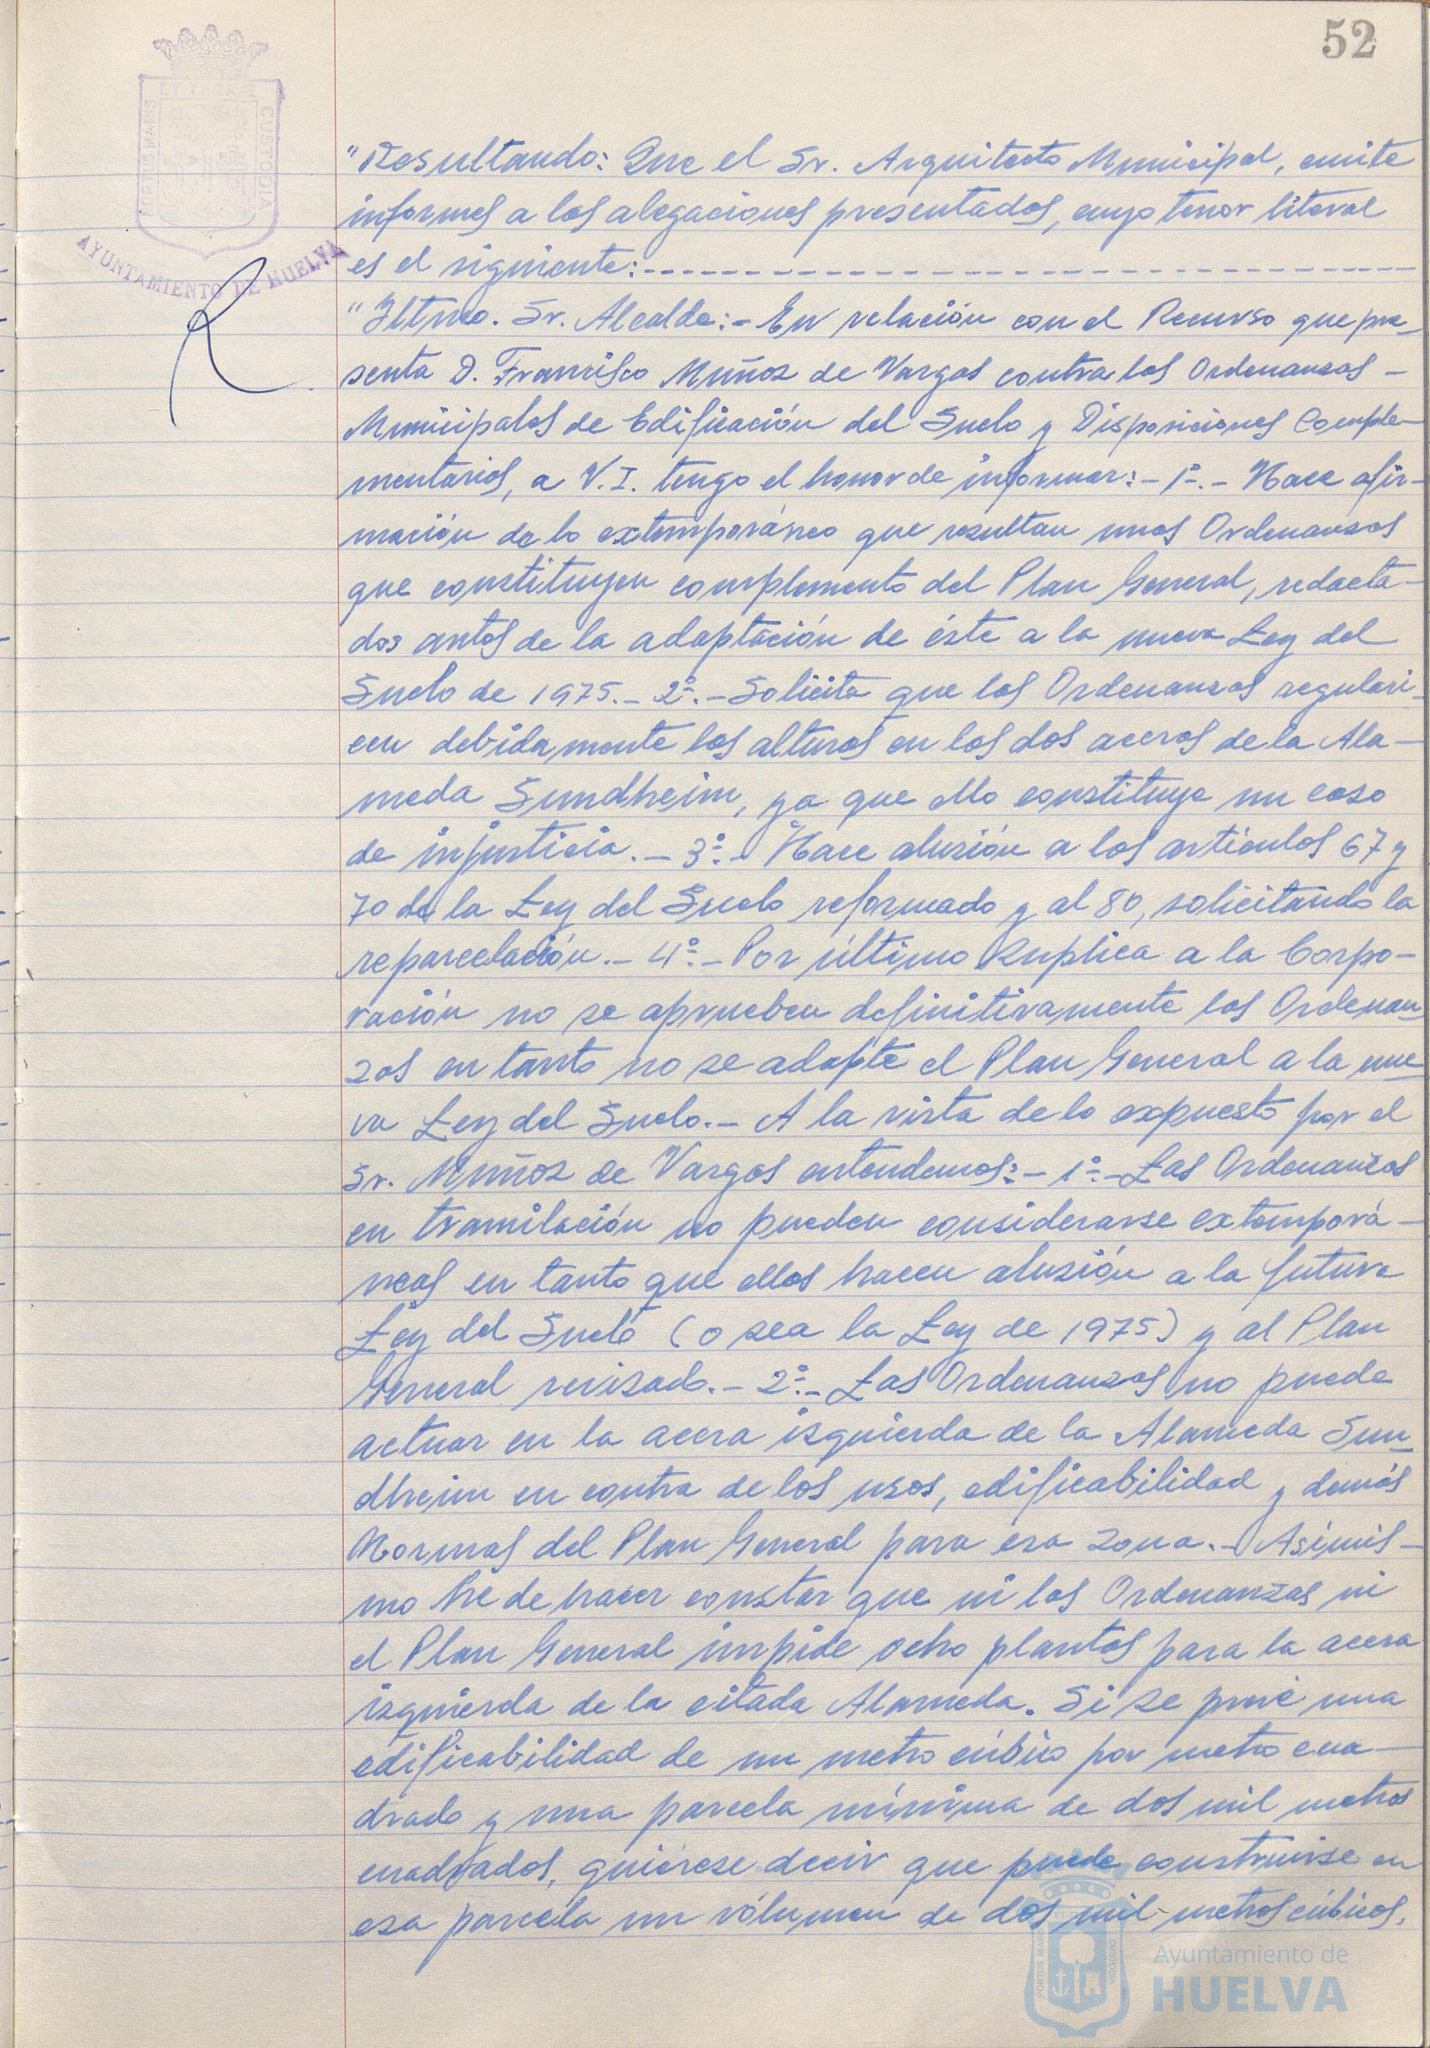 52
PORTUS MARIS
ET TERRAE
CUSTODIA
AYUNTAMIENTO DE HUELVA
"Resultando: Que el Sr. Arquitecto Municipal, emite
informes a las alegaciones presentadas, cuyo tenor literal
es el siguiente:-------------------------
"Iltmo. Sr. Alcalde:- En relación con el Recurso que pre-
senta D. Francisco Muñoz de Vargas contra las Ordenanzas -
Municipales de Edificación del Suelo y Disposiciones Comple-
mentarias, a V.I. tengo el honor de informar:- 1º.- Hace afir-
mación de lo extemporáneo que resultan unas Ordenanzas
que constituyen complemento del Plan General, redacta-
das antes de la adaptación de éste a la nueva Ley del
Suelo de 1975.- 2º.- Solicita que las Ordenanzas regulari-
cen debidamente las alturas en las dos aceras de la Ala-
meda Sundheim, ya que ello constituye un caso
de injusticia.- 3º.- Hace alusión a los artículos 67 y
70 de la Ley del Suelo reformado y al 80, solicitando la
reparcelación.- 4º.- Por último suplica a la Corpo-
ración no se aprueben definitivamente las Ordenan-
zas en tanto no se adapte el Plan General a la nue-
va Ley del Suelo.- A la vista de lo expuesto por el
Sr. Muñoz de Vargas entendemos:- 1º.- Las Ordenanzas
en tramitación no pueden considerarse extemporá-
neas en tanto que ellas hacen alusión a la futura
Ley del Suelo (o sea la Ley de 1975) y al Plan
General revisado.- 2º.- Las Ordenanzas no puede
actuar en la acera izquierda de la Alameda Sun-
dheim en contra de los usos, edificabilidad y demás
Normas del Plan General para esa zona.- Asimis-
mo he de hacer constar que ni las Ordenanzas ni
el Plan General impide ocho plantas para la acera
izquierda de la citada Alameda. Si se prevé una
edificabilidad de un metro cúbico por metro cua-
drado y una parcela mínima de dos mil metros
cuadrados, quiérese decir que puede construirse en
esa parcela un vólumen de dos mil metros cúbicos,
PORTUS MARIS
CUSTODIA
Ayuntamiento de
HUELVA